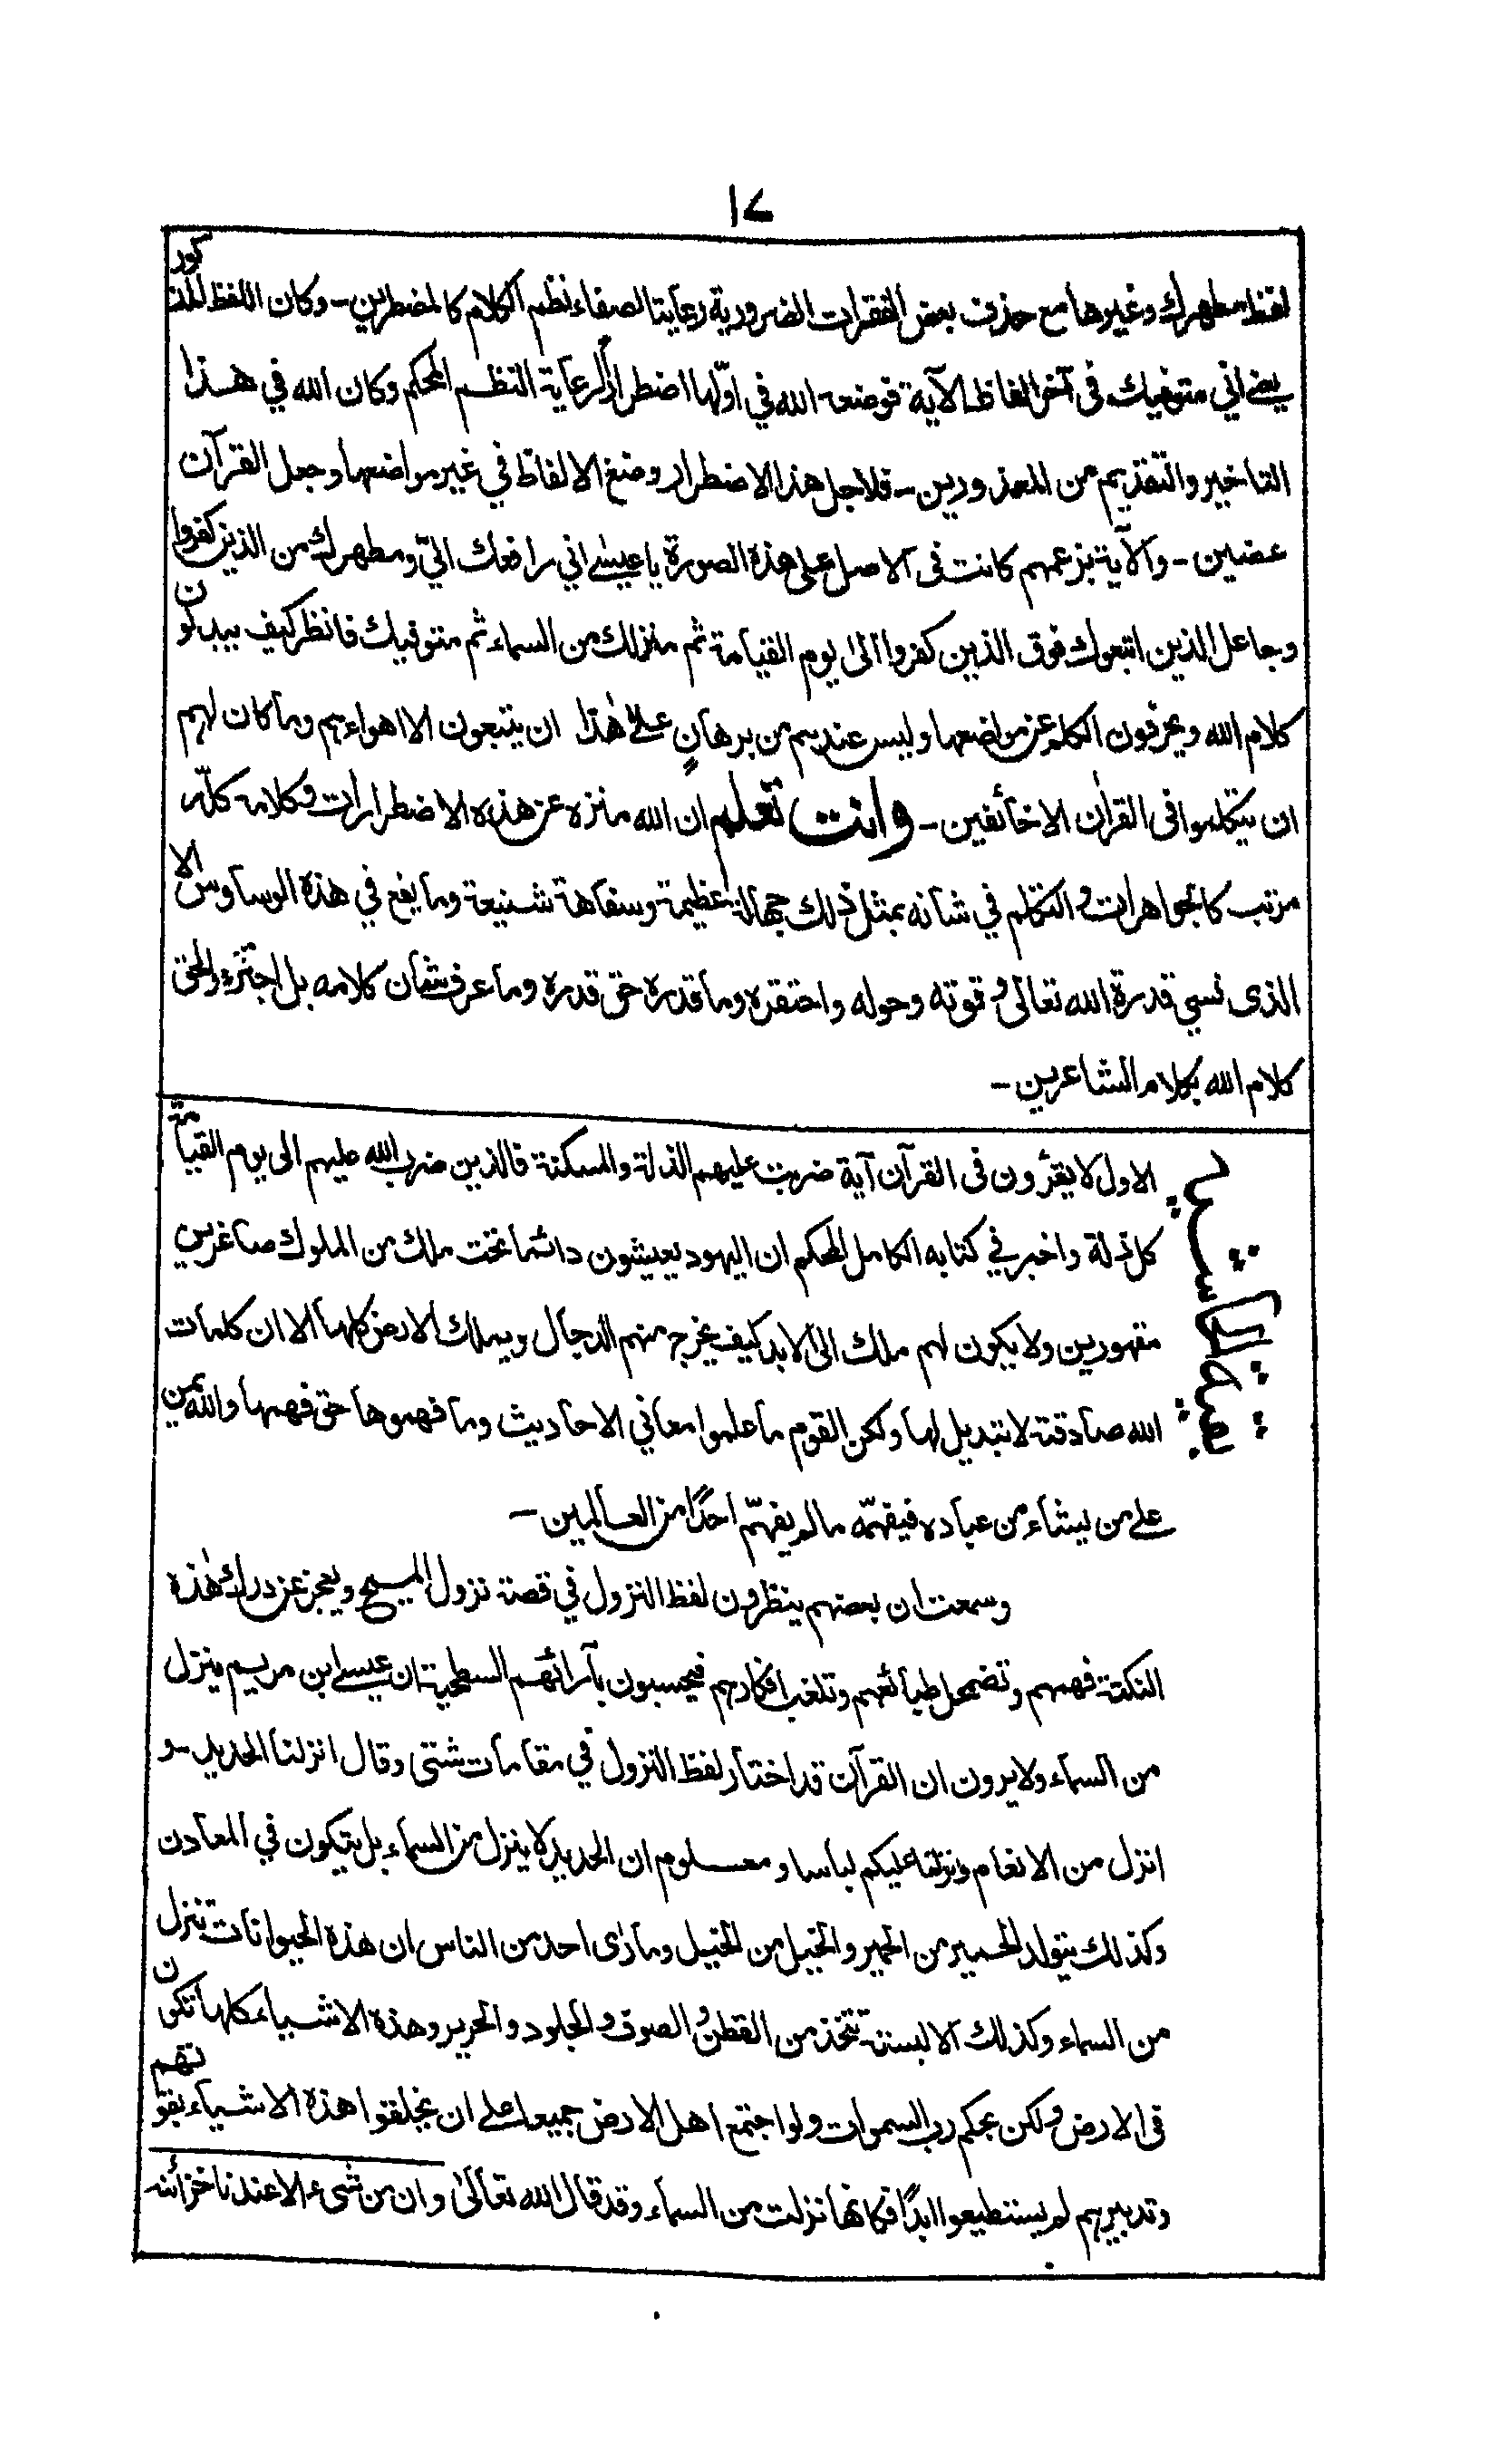 ١٧
لفظ مطهرك وغيرها مع حذف بعض الفقرات الضرورية رعايتا لصفاء نظم الكلام كالمضطرين - وكان اللفظ المذكور
يعنى اني متوفيك فى آخر الفاظ الآية فوضعه الله في اوّلها اضطرارًا لرعاية النظم المحكم وكان الله في هذا
التاخير والتقديم من المعذورين - فلاجل هذا الاضطرار وضع الالفاظ في غير مواضعها وجعل القرآن
عضين - والآية بزعمهم كانت فى الاصل على هذه الصورة يا عيسى اني رافعك اليّ ومطهرك من الذين كفروا
وجاعل الذين اتبعوك فوق الذين كفروا الى يوم القيامة ثم منزلك من السماء ثم متوفيك فانظر كيف يبدلون
كلام الله ويحرفون الكلم عن مواضعها وليس عندهم من برهانٍ على هٰذا ان يتبعون الا اهواءهم وما كان لهم
ان يتكلموا فى القرآن الا خائفين - وانت تعلم ان الله منزه عن هذه الاضطرارات وكلامه كلّه
مرتب كالجواهرات والتكلم في شانه بمثل ذلك جهالة عظيمة وسفاهة شنيعة وما يقع في هذه الوساوس الا
الذى نسي قدرة الله تعالى وقوته وحوله واحتقره وما قدره حق قدره وما عرف شان كلامه بل اجترء والحق
كلام الله بكلام الشاعرين -
الاول لا يقرءون فى القرآن آية ضربت عليهم الذلة والمسكنة فالذين ضرب الله عليهم الى يوم القيامة
كل ذلة واخبر في كتابه الكامل المحكم ان اليهود يعيشون دائما تحت ملك من الملوك صاغرين
مقهورين ولا يكون لهم ملك الى الابد كيف يخرج منهم الدجال ويملك الارض كلها الا ان كلمات
الله صادقة لا تبديل لها ولكن القوم ما علموا معاني الاحاديث وما فهموها حق فهمها والله يمن
على من يشاء من عباده فيفهّمه ما لم يفهّم احدًا من العالمين -
وسمعت ان بعضهم ينظرون لفظ النزول في قصة نزول المسيح ويعجز عن درك هٰذه
النكتة فهمهم وتضمحل طبائعهم وتلغب افكارهم فيحسبون بآرائهم السطحية ان عيسى ابن مريم ينزل
من السماء ولا يرون ان القرآن قد اختار لفظ النزول في مقامات شتى وقال انزلنا الحديد - و
انزل من الانعام ونزلنا عليكم لباسا ومعلوم ان الحديد لا ينزل من السماء بل يتكون في المعادن
وكذلك يتولد الحمير من الحمير والخيل من الخيل وما رٰى احد من الناس ان هذه الحيوانات تنزل
من السماء وكذلك الالبسة تتخذ من القطن والصوف والجلود والحرير وهذه الاشياء كلها تتكون
فى الارض ولكن بحكم رب السموات ولو اجتمع اهل الارض جميعا على ان يخلقوا هذه الاشياء بقوتهم
وتدبيرهم لم يستطيعوا ابدًا فكانها نزلت من السماء وقد قال الله تعالٰى وان من شىء الا عندنا خزائنه